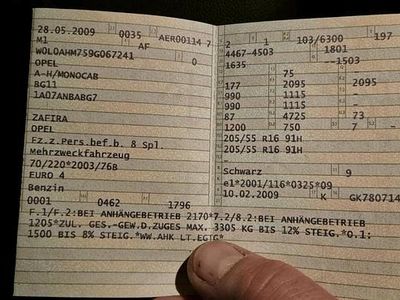 28.05.2009 0035 AER00114 7
M1 AF
W0L0AHM759G067241 0
OPEL
A-H/MONOCAB
BG11
1A07ANBABG7
ZAFIRA
OPEL
Fz.z.Pers.bef.b. 8 Spl.
Mehrzweckfahrzeug
70/220*2003/76B
EURO 4
Benzin
0001 0462 1796
2 1 103/6300 197
4467-4503 1801
1635 --1503
75
177 2095 2095
990 1115 -
990 1115 -
87 4725 73
1200 750 7
205/55 R16 91H
205/55 R16 91H
-
Schwarz 9
e1*2001/116*0325*09
10.02.2009 K GK780714
F.1/F.2:BEI ANHÄNGEBETRIEB 2170*7.2/8.2:BEI ANHÄNGEBETRIEB
1205*ZUL. GES.-GEW.D.ZUGES MAX. 3305 KG BIS 12% STEIG.*O.1:
1500 BIS 8% STEIG.*WW.AHK LT.EGTG*